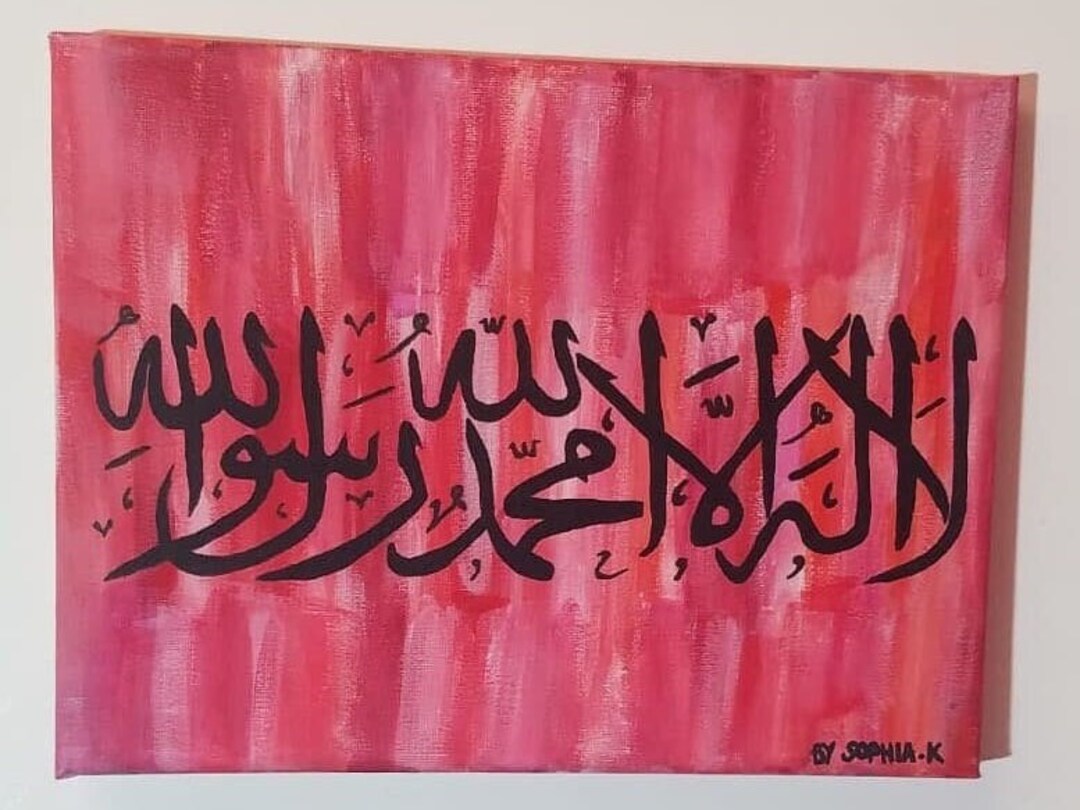 لا إله إلا الله محمد رسول الله
BY SOPHIA-K